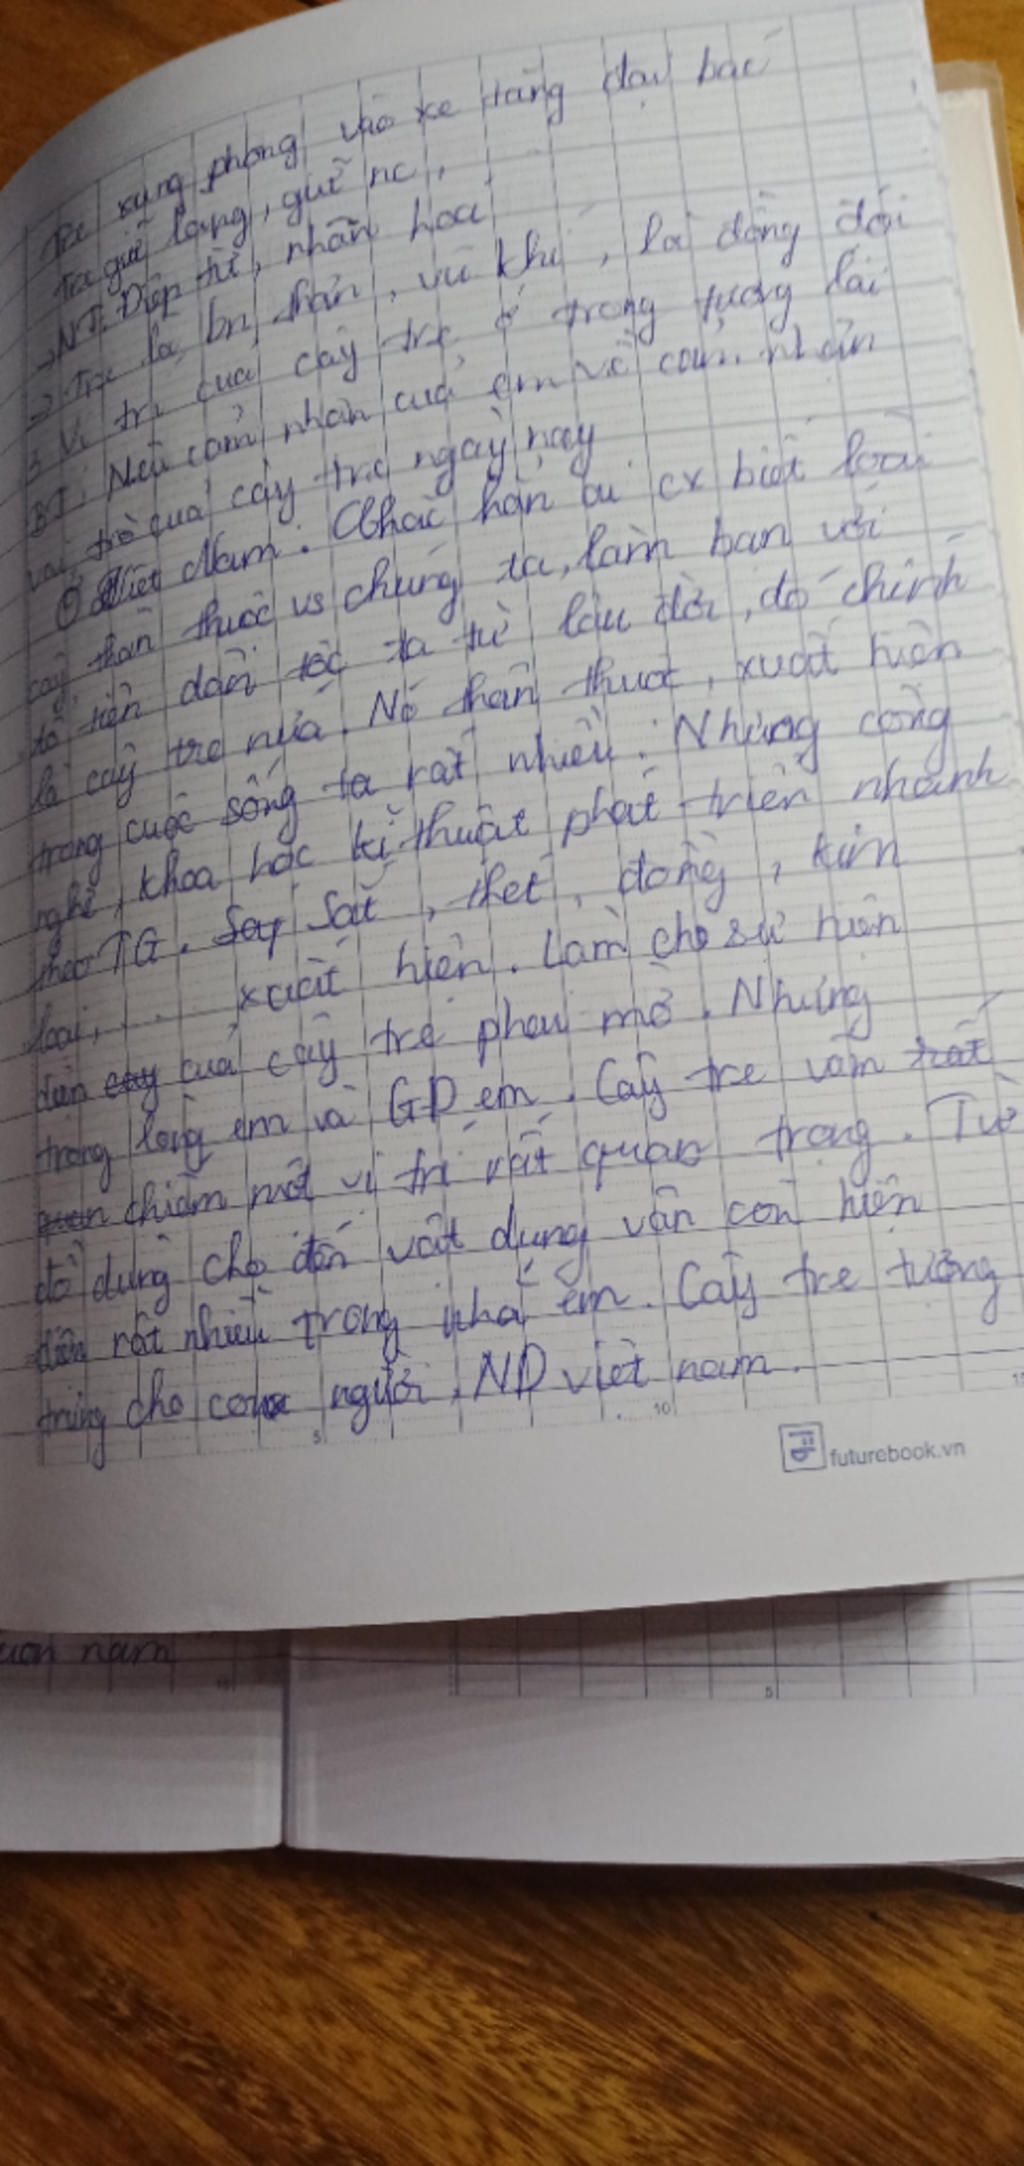 Tre xung phong vào xe tăng đại bác
Tre giữ làng, giữ nc,
→ NT: Điệp từ, nhân hoá
→ Tre là bn thân, vũ khí, là đồng đội
3. Vị trí của cây tre ở trong tương lai
BT: Nêu cảm nhận của em về cảm nhận
vai trò của cây tre ngày nay
Ở Việt Nam. Chắc hẳn ai cx biết loài
cây thân thuộc vs chúng ta, làm bạn với
tổ tiên dân tộc ta từ lâu đời, đó chính
là cây tre nứa. Nó thân thuộc, xuất hiện
trong cuộc sống ta rất nhiều. Nhưng công
nghệ, khoa học kĩ thuật phát triển nhanh
theo TG. Sắt, thét, đồng, kim
loại, .... xuất hiện. Làm cho sự hiện
diện của cây tre phai mờ. Nhưng
trong lòng em và GĐ em. Cây tre vẫn rất
quan chiếm một vị trí rất quan trọng. Từ
đồ dùng cho đến vật dụng vẫn còn hiện
diện rất nhiều trong nhà em. Cây tre tượng
trưng cho con người, ND việt nam.
futurebook.vn
nam